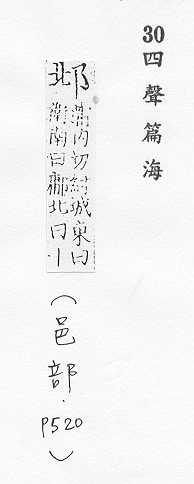 30四聲篇海
邶
蒲内切紂城東曰
衛南曰鄘北曰丨
（邑部．P520）